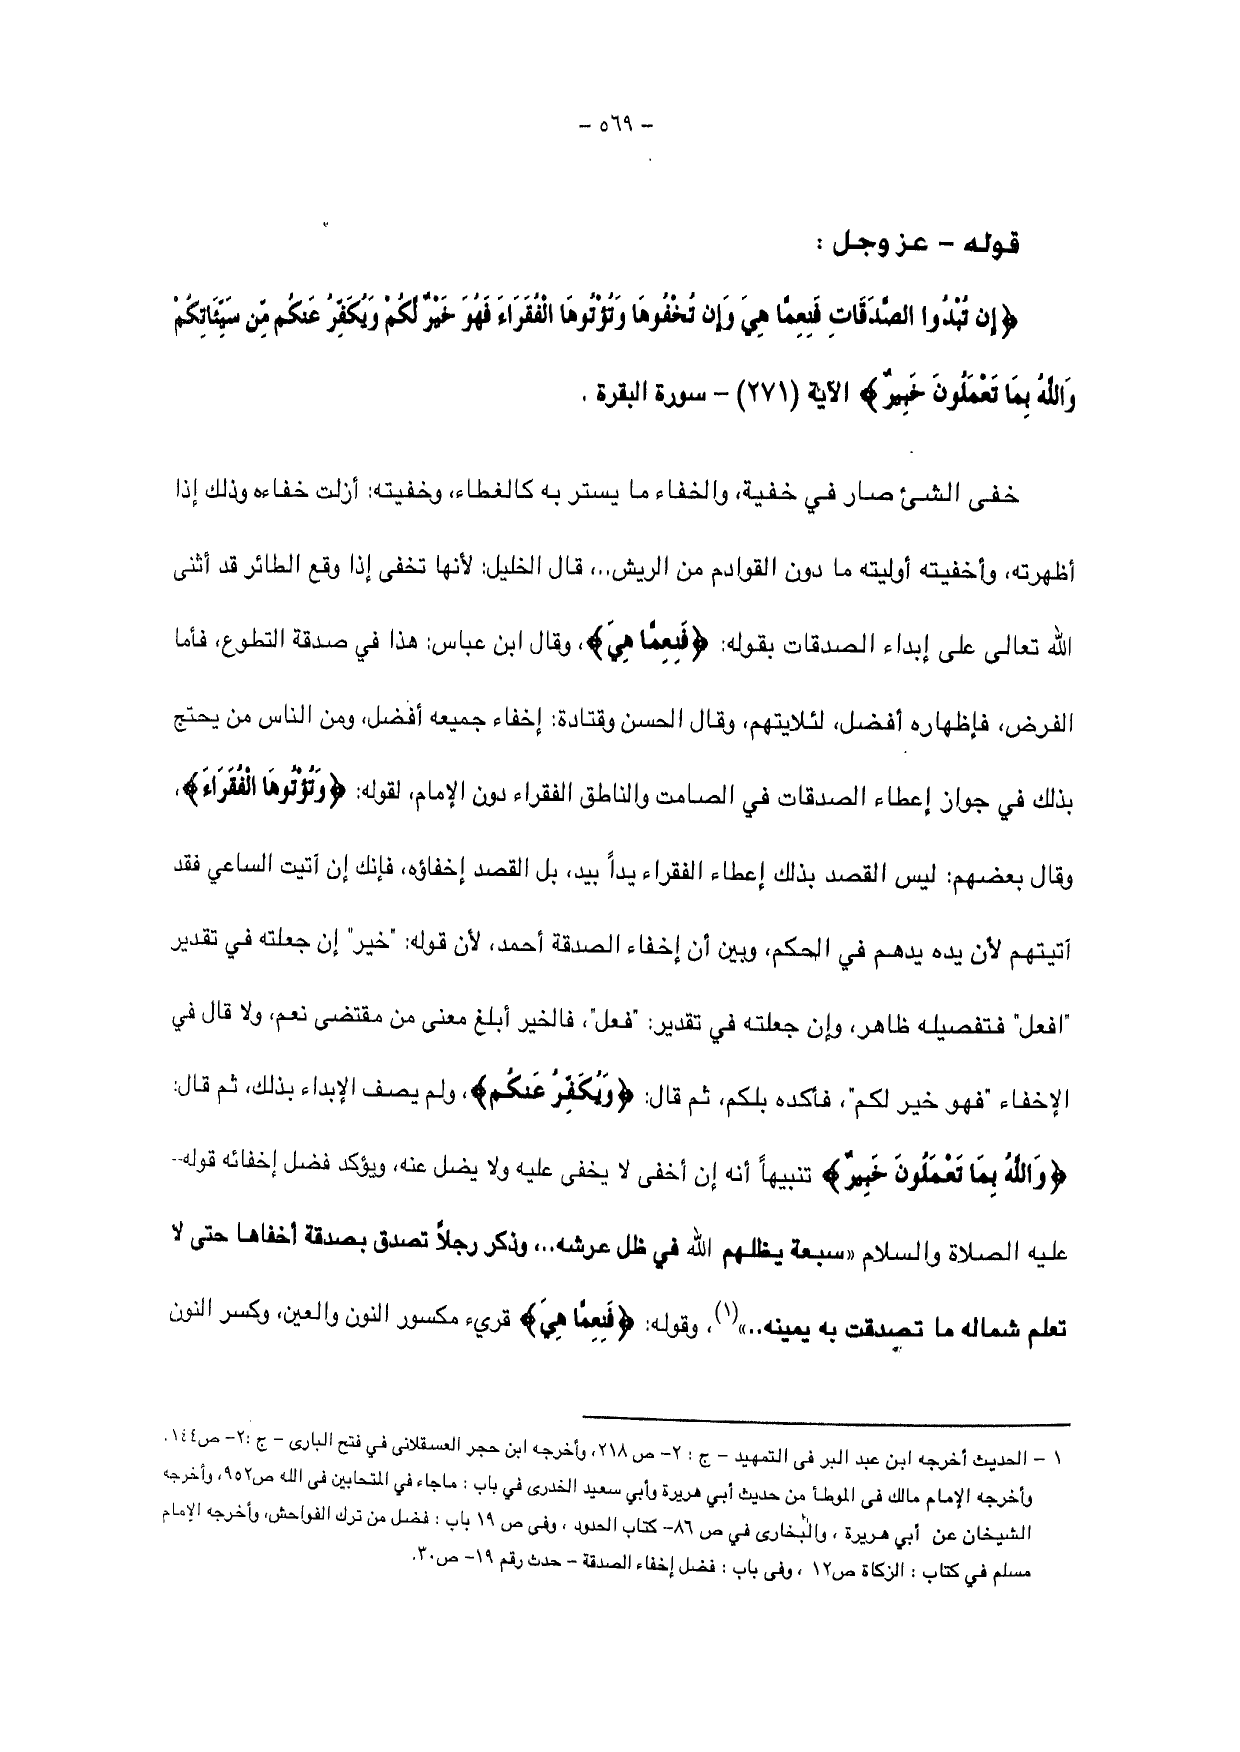 – ٥٦٩ –
قوله – عز وجل :
﴿إِن تُبْدُوا الصَّدَقَاتِ فَنِعِمَّا هِيَ وَإِن تُخْفُوهَا وَتُؤْتُوهَا الْفُقَرَاءَ فَهُوَ خَيْرٌ لَّكُمْ وَيُكَفِّرُ عَنكُم مِّن سَيِّئَاتِكُمْ
وَاللَّهُ بِمَا تَعْمَلُونَ خَبِيرٌ﴾ الآية (٢٧١) – سورة البقرة .
خفى الشئ صار في خفية، والخفاء ما يستر به كالغطاء، وخفيته: أزلت خفاءه وذلك إذا
أظهرته، وأخفيته أوليته ما دون القوادم من الريش..، قال الخليل: لأنها تخفى إذا وقع الطائر قد أثنى
الله تعالى على إبداء الصدقات بقوله: ﴿فَنِعِمَّا هِيَ﴾، وقال ابن عباس: هذا في صدقة التطوع، فأما
الفرض، فإظهاره أفضل، لئلايتهم، وقال الحسن وقتادة: إخفاء جميعه أفضل، ومن الناس من يحتج
بذلك في جواز إعطاء الصدقات في الصامت والناطق الفقراء دون الإمام، لقوله: ﴿وَتُؤْتُوهَا الْفُقَرَاءَ﴾،
وقال بعضهم: ليس القصد بذلك إعطاء الفقراء يداً بيد، بل القصد إخفاؤه، فإنك إن آتيت الساعي فقد
آتيتهم لأن يده يدهم في الحكم، وبين أن إخفاء الصدقة أحمد، لأن قوله: "خير" إن جعلته في تقدير
"افعل" فتفصيله ظاهر، وإن جعلته في تقدير: "فعل"، فالخير أبلغ معنى من مقتضى نعم، ولا قال في
الإخفاء "فهو خير لكم"، فأكده بلكم، ثم قال: ﴿وَيُكَفِّرُ عَنكُم﴾، ولم يصف الإبداء بذلك، ثم قال:
﴿وَاللَّهُ بِمَا تَعْمَلُونَ خَبِيرٌ﴾ تنبيهاً أنه إن أخفى لا يخفى عليه ولا يضل عنه، ويؤكد فضل إخفائه قوله--
عليه الصلاة والسلام «سبعة يظلهم الله في ظل عرشه..، وذكر رجلاً تصدق بصدقة أخفاها حتى لا
تعلم شماله ما تصدقت به يمينه..»(١)، وقوله: ﴿فَنِعِمَّا هِيَ﴾ قريء مكسور النون والعين، وكسر النون
١ – الحديث أخرجه ابن عبد البر فى التمهيد – ج : ٢– ص ٢١٨، وأخرجه ابن حجر العسقلانى في فتح البارى – ج :٢– ص١٤٤.
وأخرجه الإمام مالك فى الموطأ من حديث أبي هريرة وأبي سعيد الخدرى في باب : ماجاء في المتحابين فى الله ص٩٥٢، وأخرجه
الشيخان عن أبي هريرة ، والبخارى في ص ٨٦– كتاب الحدود ، وفى ص ١٩ باب : فضل من ترك الفواحش، وأخرجه الإمام
مسلم في كتاب : الزكاة ص١٢ ، وفى باب : فضل إخفاء الصدقة – حدث رقم ١٩– ص٣٠.